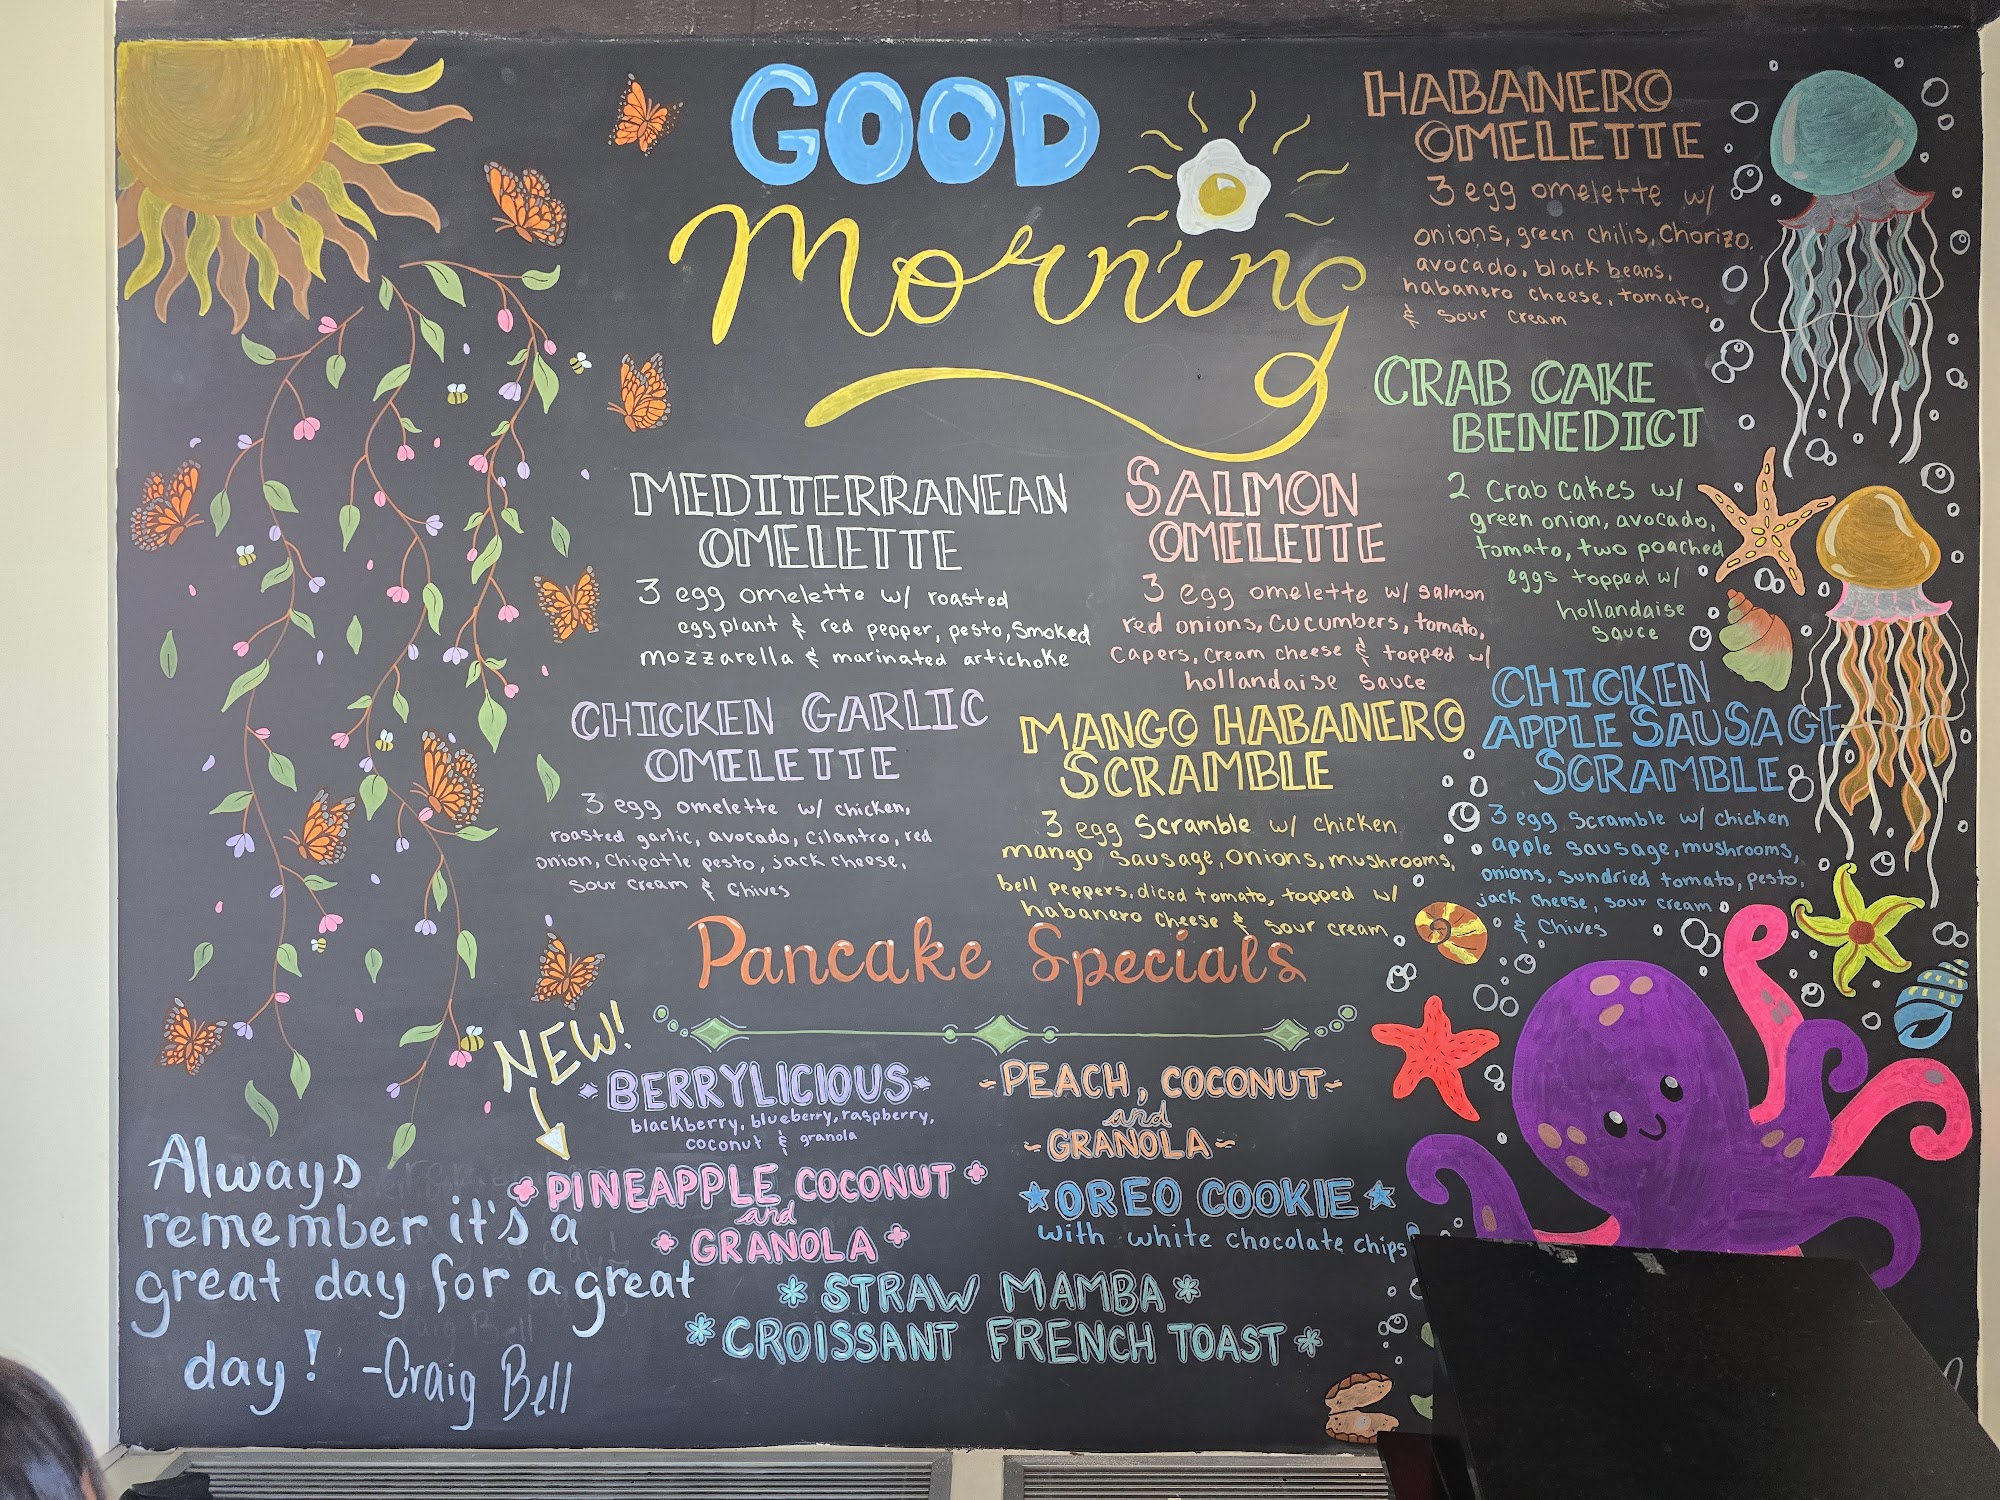 GOOD
Morning
HABANERO
OMELETTE
3 egg omelette w/
onions, green chilis, Chorizo,
avocado, black beans,
habanero cheese, tomato,
& sour cream
CRAB CAKE
BENEDICT
2 Crab Cakes w/
green onion, avocado,
tomato, two poached
eggs topped w/
hollandaise
sauce
MEDITERRANEAN
OMELETTE
3 egg omelette w/ roasted
eggplant & red pepper, pesto, smoked
mozzarella & marinated artichoke
SALMON
OMELETTE
3 egg omelette w/ salmon
red onions, cucumbers, tomato,
capers, cream cheese & topped w/
hollandaise sauce
CHICKEN GARLIC
OMELETTE
3 egg omelette w/ chicken,
roasted garlic, avocado, cilantro, red
onion, Chipotle pesto, jack cheese,
sour cream & Chives
MANGO HABANERO
SCRAMBLE
3 egg Scramble w/ chicken
mango sausage, onions, mushrooms,
bell peppers, diced tomato, topped w/
habanero cheese & sour cream
CHICKEN
APPLE SAUSAGE
SCRAMBLE
3 egg scramble w/ chicken
apple sausage, mushrooms,
onions, sundried tomato, pesto,
jack cheese, sour cream
& Chives
Pancake Specials
NEW!
BERRYLICIOUS
blackberry, blueberry, raspberry,
coconut & granola
~PEACH, COCONUT~
and
~GRANOLA~
PINEAPPLE COCONUT
and
GRANOLA
OREO COOKIE
with white chocolate chips
STRAW MAMBA
CROISSANT FRENCH TOAST
Always
remember it's a
great day for a great
day! -Craig Bell